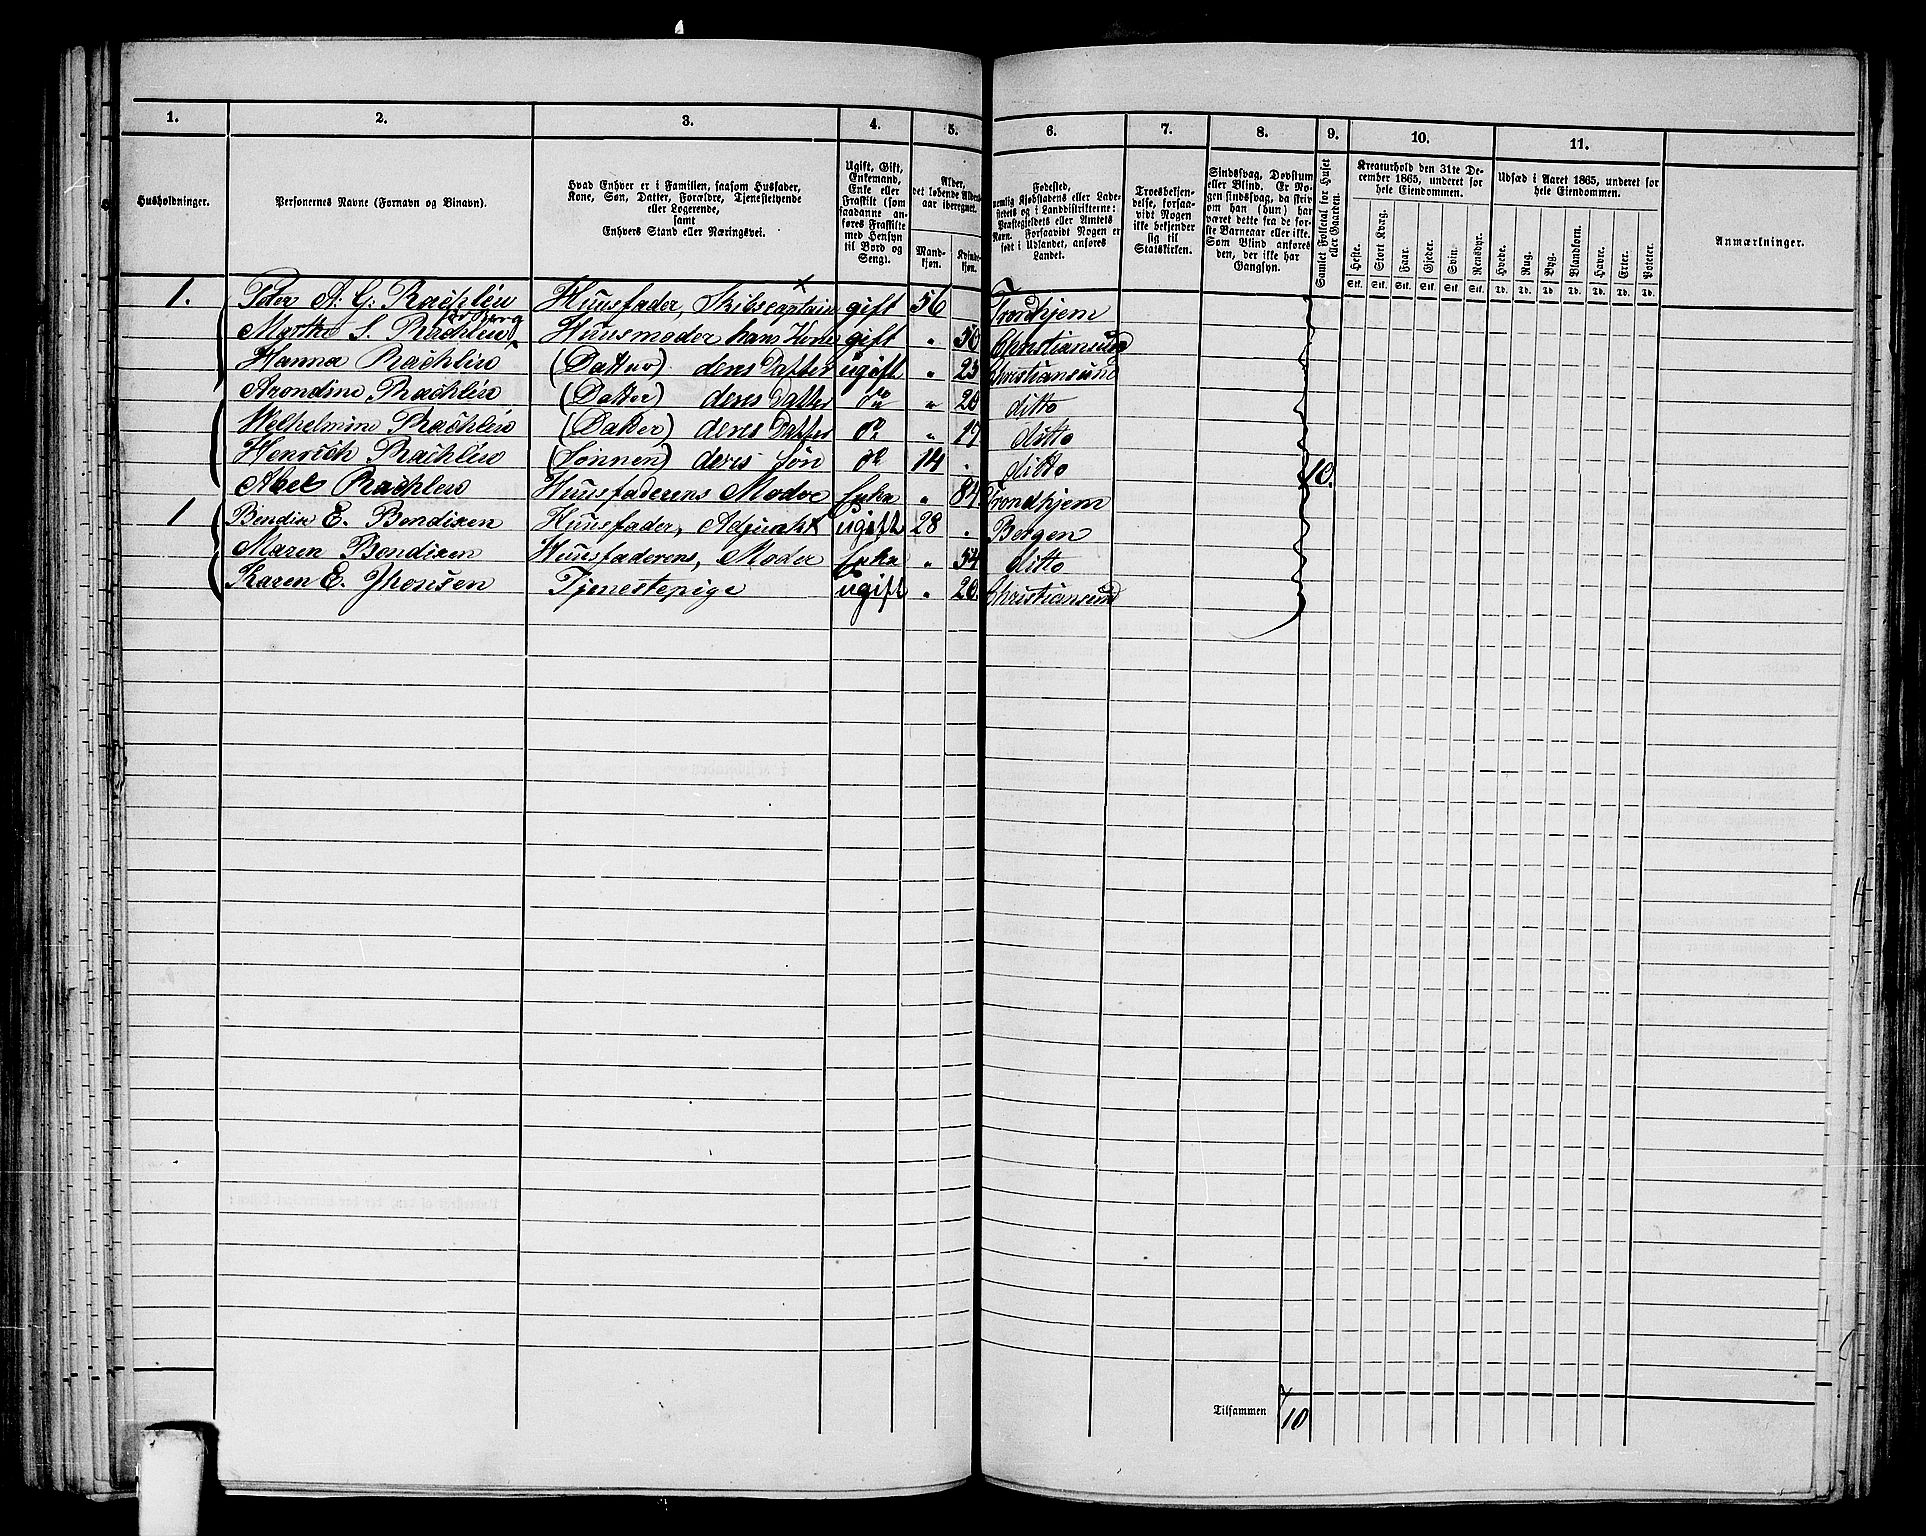 1. 2. 3. 4. 5. 6. 7. 8. 9. 10. 11.
Husholdninger.
Personernes Navne (Fornavn og Binavn).
Hvad Enhver er i Familien, saasom Husfader,
Kone, Søn, Datter, Forældre, Tjenestetyende
eller Logerende,
samt
Enhvers Stand eller Næringsvei.
Ugift, Gift,
Enkemand,
Enke eller
Fraskilt (som
saadanne an-
føres Fraskilte
med Hensyn
til Bord og
Seng).
Alder,
det løbende Alders-
aar iberegnet.
Mand-
kjøn.
Kvinde-
kjøn.
Fødested,
nemlig Kjøbstadens eller Lade-
stedets og i Landdistrikterne:
Præstegjeldets eller Amtets
Navn. Forsaavidt Nogen er
født i Udlandet, anføres
Landet.
Troesbekjen-
delse, forsaa-
vidt Nogen
ikke bekjender
sig til
Statskirken.
Sindssvag, Døvstum
eller Blind. Er No-
gen sindssvag, da skriv
om han (hun) har
været dette fra de før-
ste Barneaar eller ikke.
Som Blind anføres
den, der ikke har
Gangsyn.
Samlet Folketal for Huset
eller Gaarden.
Kreaturhold den 31te De-
cember 1865, underet for
hele Eiendommen.
Heste. Stort Kvæg. Faar. Gjeder. Svin. Rensdyr.
Stk. Stk. Stk. Stk. Stk. Stk.
Udsæd i Aaret 1865, underet for
hele Eiendommen.
Hvede. Rug. Byg. Blandkorn. Havre. Erter. Poteter.
Td. Td. Td. Td. Td. Td. Td.
Anmærkninger.
1. Peter A. G. Rachlew Huusfader, Skibscaptain gift 56 Trondhjem
Marthe S. Rachlew Huusmoder hans Kone gift " 50 Christiansund
Hanna Rachlew (Datter) deres Datter ugift " 23 Christiansund
Arondine Rachlew (Datter) deres Datter do " 20 ditto
Welhelmine Rachlew (Datter) deres Datter do " 17 ditto
Henrich Rachlew (Sønnen) deres Søn do 14 " ditto
Abel Rachlew Huusfaderens Moder Enke " 84 Trondhjem 10.
1 Bendix E. Bendixen Huusfader, Adjunkt ugift 28 . Bergen
Maren Bendixen Huusfaderens, Moder Enke " 54 ditto
Karen E. Jhonsen Tjenestepige ugift " 20. Christiansund
Tilsammen 10